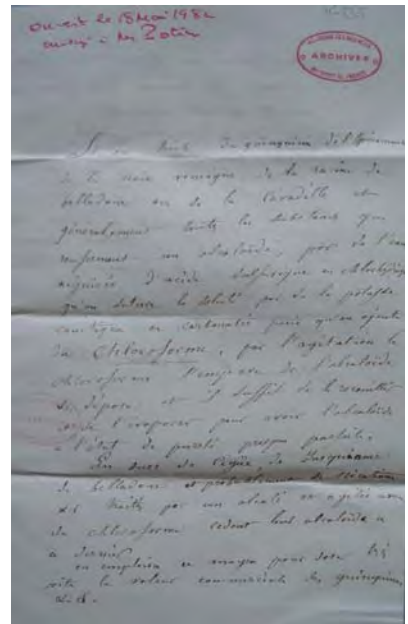 ouvert le 18 Mai 1982
envoyé à Mr Potier
ARCHIVES
Si on traite du quinquina de l'
de la noix vomique de la racine de
belladone ou de la Cévadille et
généralement toute les substances qui
renferment un alcaloïde, par de l'eau
d'acide sulfurique ou chlorhydrique
qu'on le soluté par de la potasse
caustique ou carbonatée puis qu'on ajoute
du Chloroforme, par l'agitation le
chloroforme s'empare de l'alcaloïde
se dépose et il suffit de le recueillir
l'évaporer pour avoir l'alcaloïde
à l'état de pureté presque parfaite.
En sucs de Cigüe de Jusquiame
de belladone et probablement de
traités par un alcali en agités avec
du chloroforme cèdent leur alcaloïde à
ce dernier
on emploiera ce moyen pour doser très
vite la valeur commerciale des quinquinas